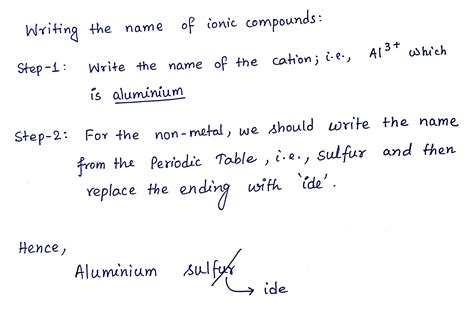 Writing the name of ionic compounds:
Step-1: Write the name of the cation; i.e., Al³⁺ which
is aluminium
Step-2: For the non-metal, we should write the name
from the Periodic Table, i.e., sulfur and then
replace the ending with 'ide'.
Hence,
Aluminium sulfur
ide